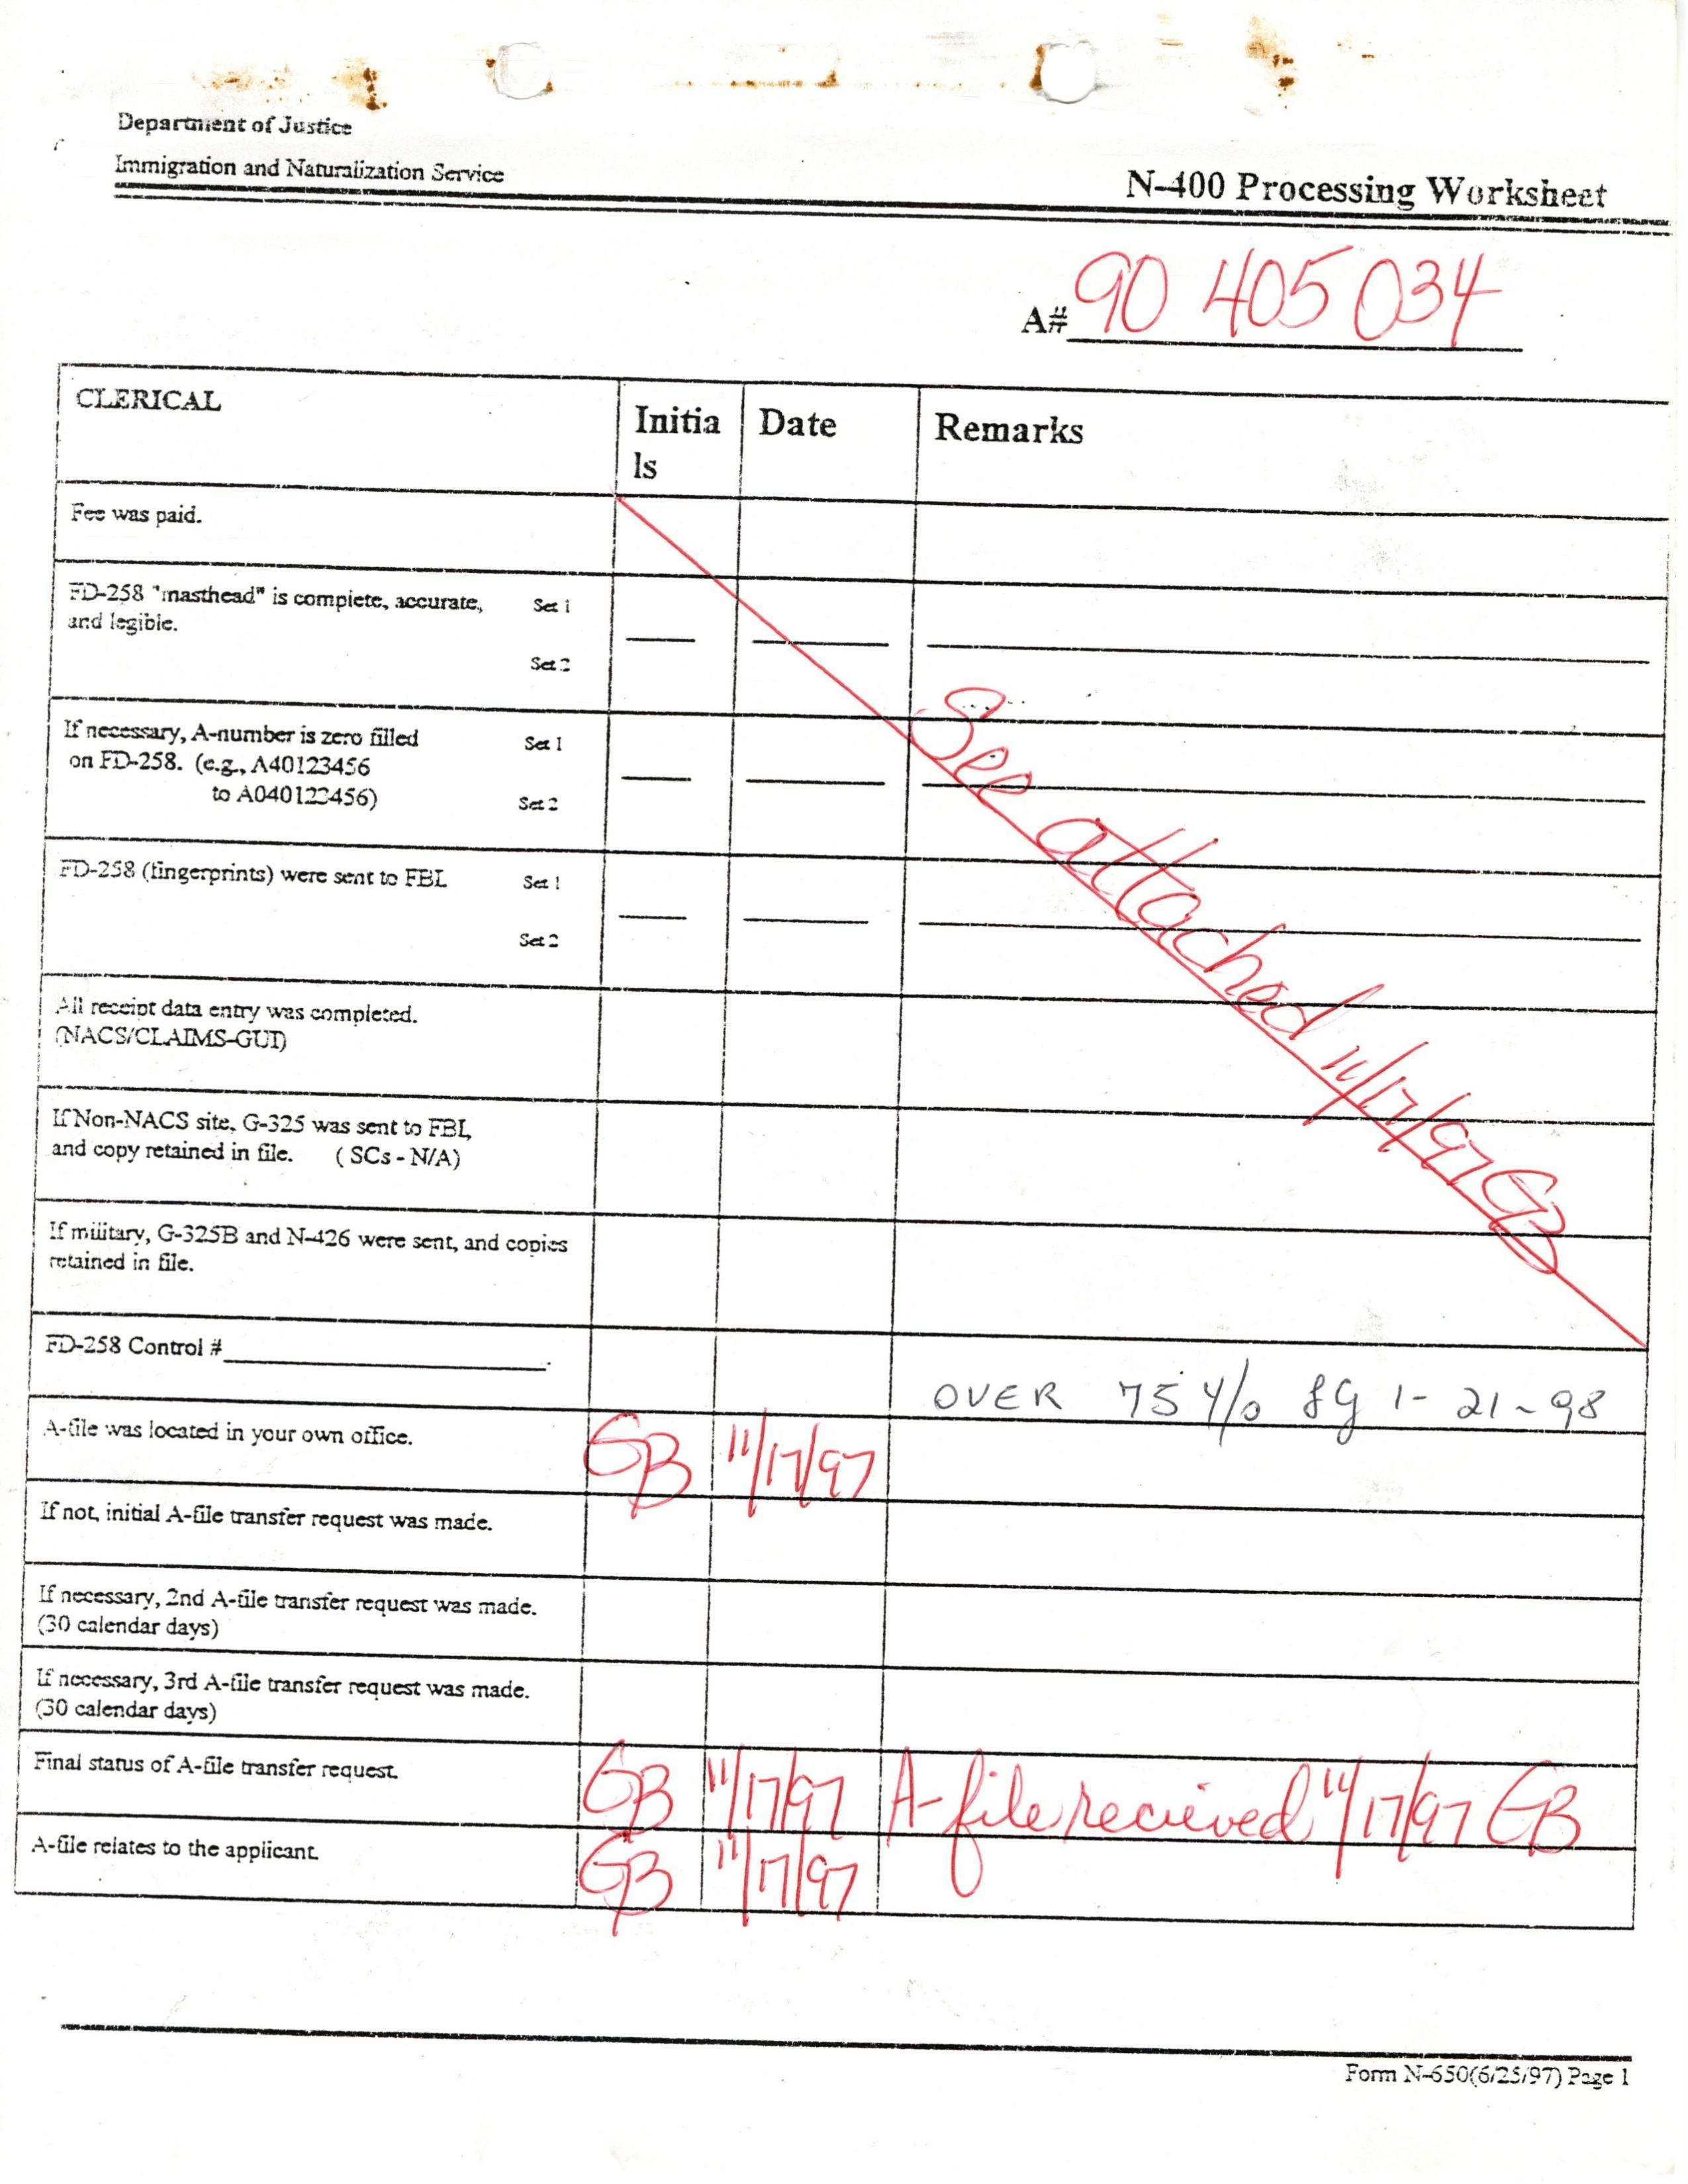 Department of Justice
Immigration and Naturalization Service
N-400 Processing Worksheet
A# 90 405 034
CLERICAL
Initia
ls
Date
Remarks
Fee was paid.
FD-258 "masthead" is complete, accurate, Set 1
and legible.
Set 2
If necessary, A-number is zero filled Set 1
on FD-258. (e.g., A40123456
to A040123456) Set 2
FD-258 (fingerprints) were sent to FBI. Set 1
Set 2
See attached 11/17/97 GB
All receipt data entry was completed.
(NACS/CLAIMS-GUI)
If Non-NACS site, G-325 was sent to FBI,
and copy retained in file. ( SCs - N/A)
If military, G-325B and N-426 were sent, and copies
retained in file.
FD-258 Control #
OVER 75 Y/o 1-21-98
A-file was located in your own office. GB 11/17/97
If not, initial A-file transfer request was made.
If necessary, 2nd A-file transfer request was made.
(30 calendar days)
If necessary, 3rd A-file transfer request was made.
(30 calendar days)
Final status of A-file transfer request. GB 11/17/97 A-file recieved 11/17/97 GB
A-file relates to the applicant. GB 11/17/97
Form N-650(6/25/97) Page 1